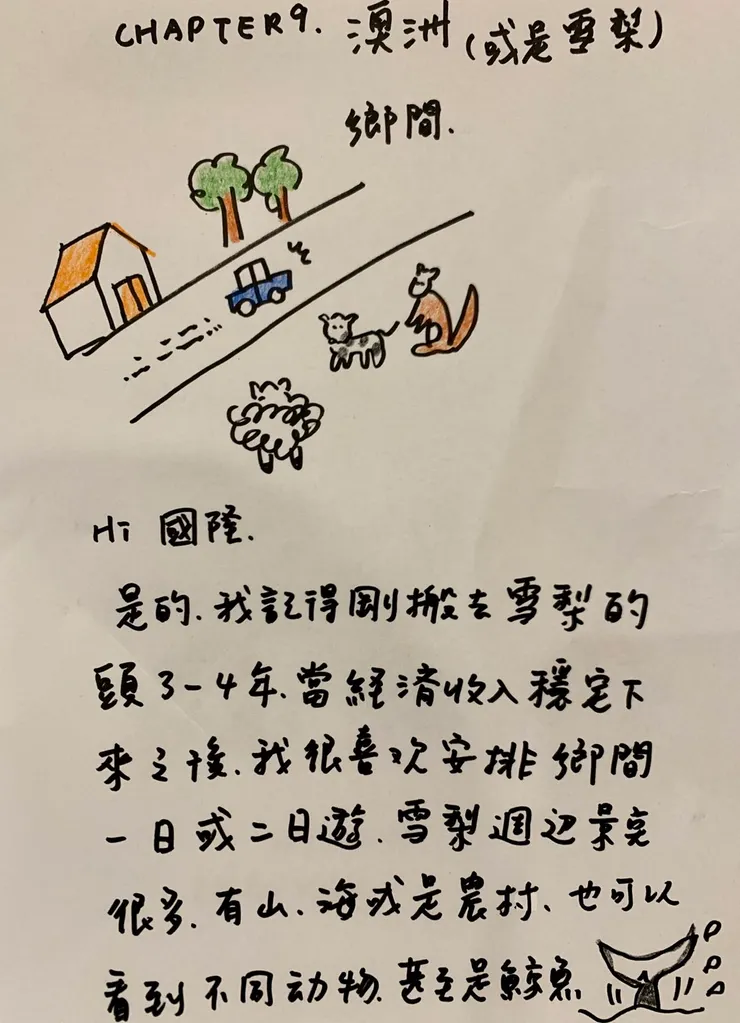 CHAPTER9. 澳洲(或是雪梨)
鄉間.
Hi 國隆.
是的.我記得剛搬去雪梨的
頭3-4年.當經濟收入穩定下
來之後.我很喜欢安排鄉間
一日或二日遊.雪梨週边景亮
很多.有山.海或是農村、也可以
看到不同动物.甚至是鯨魚